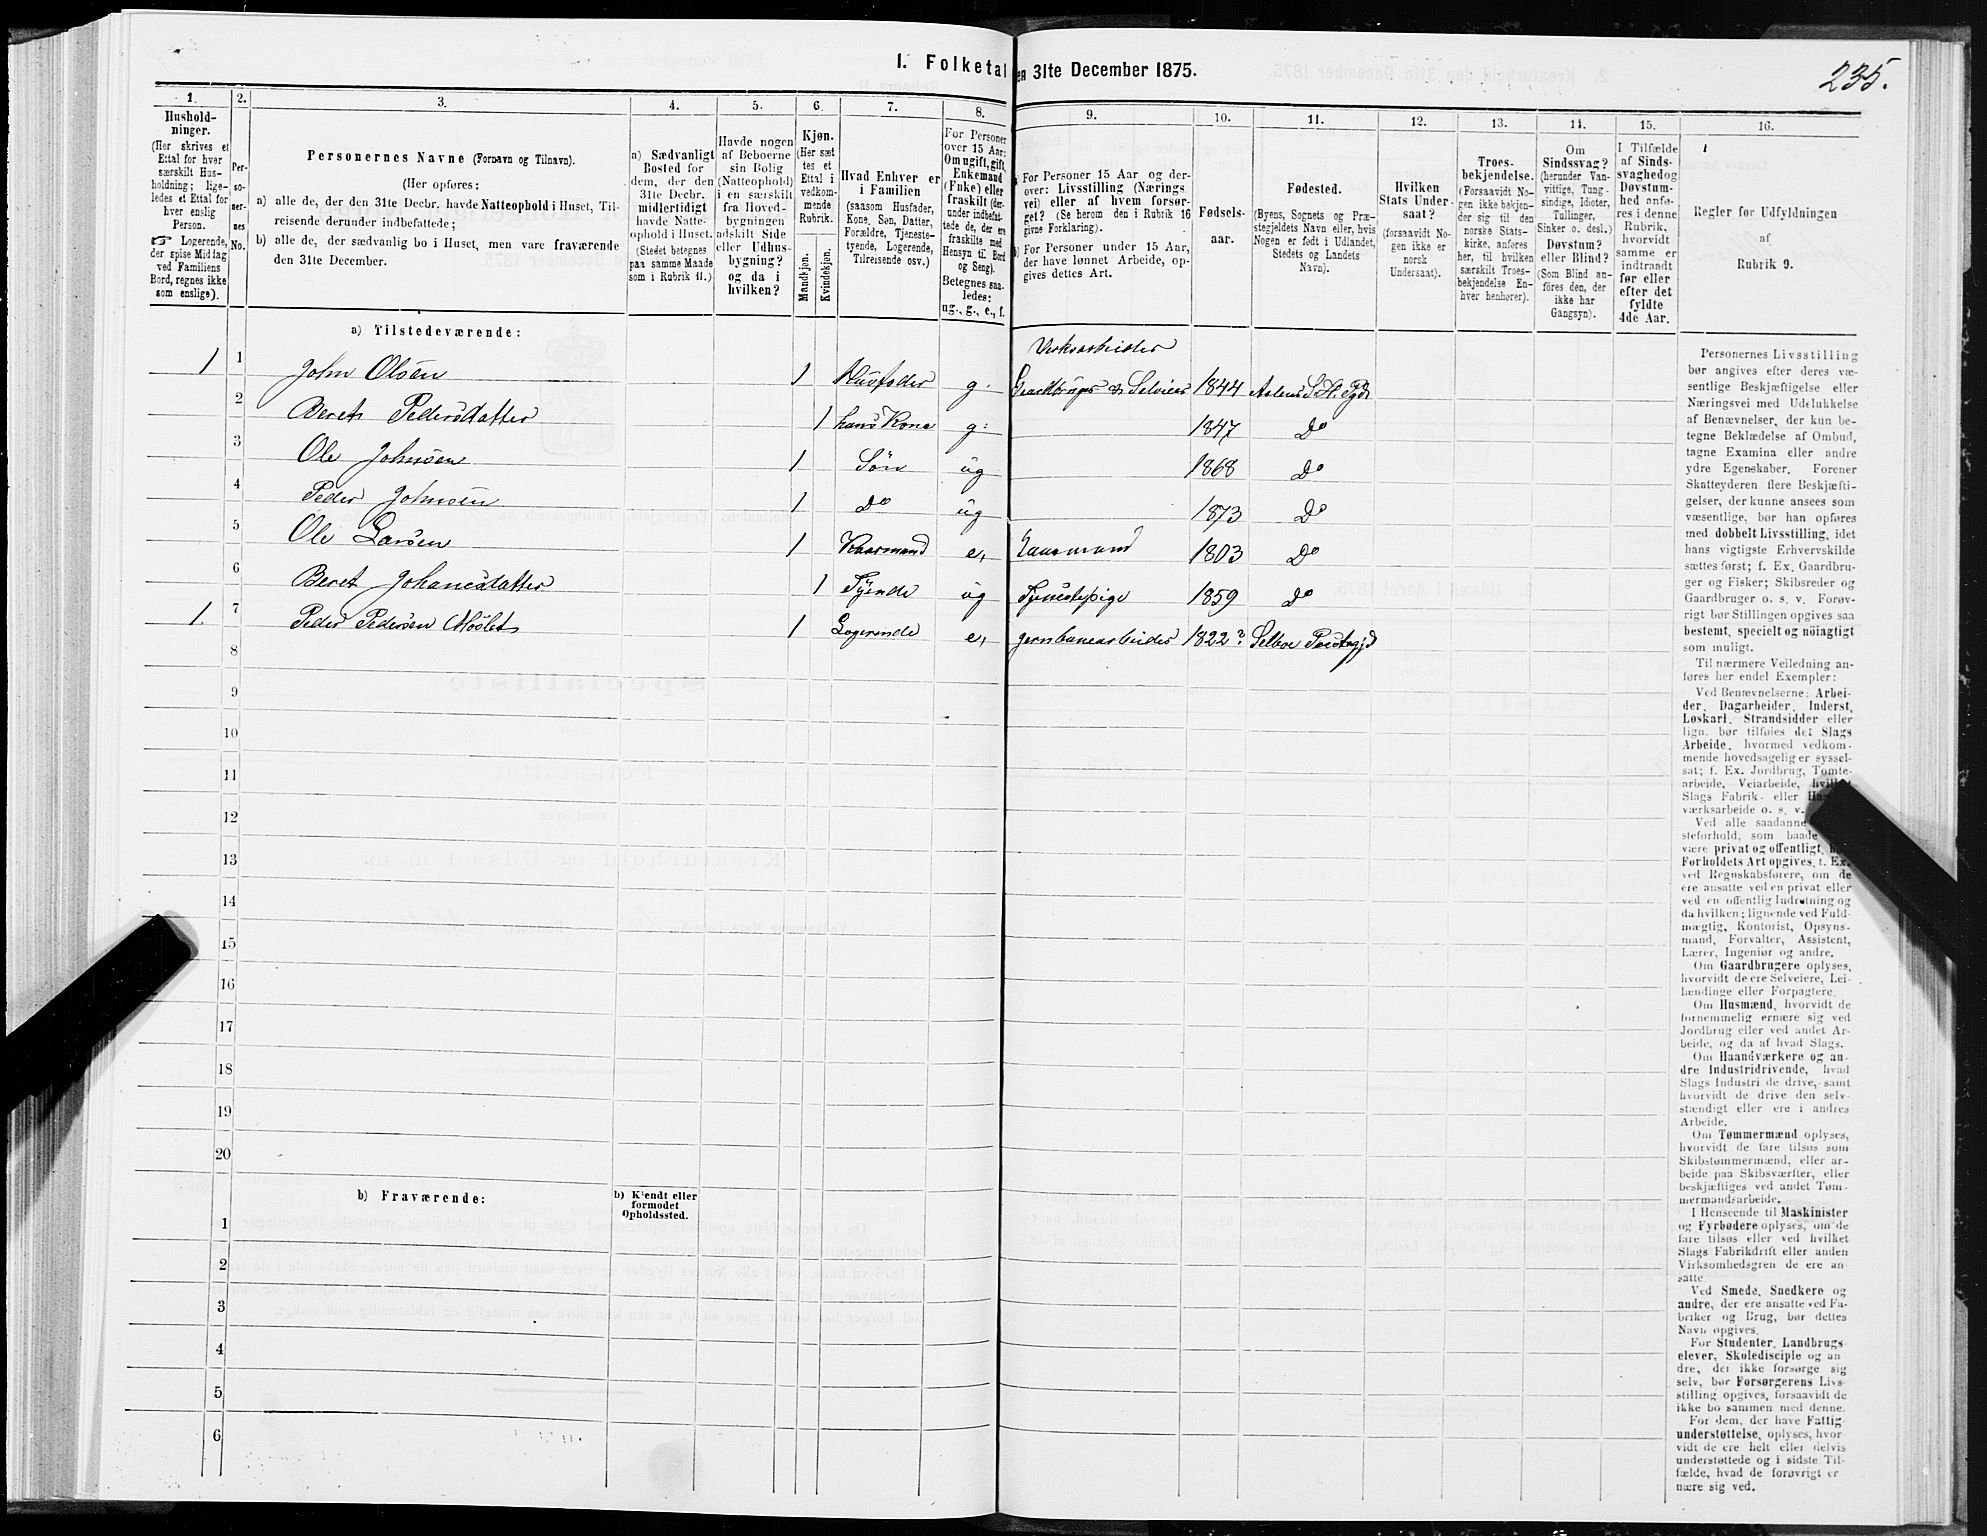 1. Folketal
en 31te December 1875.
235.
1.
Hushold-
ninger.
(Her skrives et
Ettal for hver
særskilt Hus-
holdning; lige-
ledes et Ettal for
hver enslig
Person.
☞ Logerende,
der spise Middag
ved Familiens
Bord, regnes ikke
som enslige).
2.
Per-
so-
ner-
nes
No.
3.
Personernes Navne (Fornavn og Tilnavn).
(Her opføres:
a) alle de, der den 31te Decbr. havde Natteophold i Huset, Til-
reisende derunder indbefattede;
b) alle de, der sædvanlig bo i Huset, men vare fraværende
den 31te December.
4.
a) Sædvanligt
Bosted for
dem, der den
31te Decbr.
midlertidigt
havde Natte-
ophold i Huset.
(Stedet betegnes
paa samme Maade
som i Rubrik 11.)
5.
Havde nogen
af Beboerne
sin Bolig
(Natteophold)
i en særskilt
fra Hoved-
bygningen
adskilt Side
eller Udhus-
bygning?
og da i
hvilken?
6.
Kjøn.
(Her sæt
tes et
Ettal i
vedkom-
mende
Rubrik.
Mandkjøn.
Kvindekjøn.
7.
Hvad Enhver er
i Familien
(saasom Husfader,
Kone, Søn, Datter,
Forældre, Tjeneste-
tyende, Logerende,
Tilreisende osv.)
8.
For Personer
over 15 Aar:
Om ugift, gift,
Enkemand
(Enke) eller
fraskilt (der-
under indbefat-
tede de, der ere
fraskilte med
Hensyn til Bord
og Seng).
Betegnes saa-
ledes:
ug., g., e., f.
9.
For Personer 15 Aar og der-
over: Livsstilling (Nærings
vei) eller af hvem forsør-
get? (Se herom den i Rubrik 16
givne Forklaring).
b) For Personer under 15 Aar,
der have lønnet Arbeide, op-
gives dettes Art.
10.
Fødsels-
aar.
11.
Fødested.
(Byens, Sognets og Præ-
stegjeldets Navn eller, hvis
Nogen er født i Udlandet,
Stedets og Landets
Navn).
12.
Hvilken
Stats Under-
saat?
(forsaavidt No-
gen ikke er
norsk
Undersaat).
13.
Troes-
bekjendelse.
(Forsaavidt No-
gen ikke bekjen-
der sig til den
norske Stats-
kirke, anføres
her, til hvilken
særskilt Troes-
bekjendelse En-
hver henhører).
14.
Om
Sindssvag?
(herunder Van-
vittige, Tung-
sindige, Idioter,
Tullinger,
Sinker o. desl.)
Døvstum?
eller Blind?
(Som Blind an-
føres den, der
ikke har
Gangsyn).
15.
I Tilfælde
af Sinds-
svaghed og
Døvstum-
hed anfø-
res i denne
Rubrik,
hvorvidt
samme er
indtraadt
før eller
efter det
fyldte
4de Aar.
16.
Regler før Udfyldningen
af
Rubrik 9.
a) Tilstedeværende:
Verksarbeider
1 1 John Olsen 1 Husfader g. Gaardbruger & Selveier 1844 Aalens S. H. Pgd
2 Beret Pedersdatter 1 hans Kone g. 1847 Do
3 Ole Johnsen 1 Søn ug 1868 Do
4 Peder Johnsen 1 Do ug 1873 Do
5 Ole Larsen 1 Kaarmand e, Kaarmand 1803 Do
6 Beret Johanesdatter 1 Tyende ug Tjenestepige 1859 Do
1. 7 Peder Pedersen Moslet 1 Logerende e, jernbanearbeider 1822? Selboe Prestegjd
8
9
10
11
12
13
14
15
16
17
18
19
20
b) Fraværende:
b) Kjendt eller
formodet
Opholdssted.
1
2
3
4
5
6
Personernes Livsstilling
bør angives efter deres væ-
sentlige Beskjæftigelse eller
Næringsvei med Udelukkelse
af Benævnelser, der kun be-
tegne Beklædelse af Ombud,
tagne Examina eller andre
ydre Egenskaber. Forener
Skatteyderen flere Beskjæfti-
gelser, der kunne ansees som
væsentlige, bør han opføres
med dobbelt Livsstilling, idet
hans vigtigste Erhvervskilde
sættes først; f. Ex. Gaardbru-
ger og Fisker; Skibsreder og
Gaardbruger o. s. v. Forøv-
rigt bør Stillingen opgives saa
bestemt, specielt og nöiagtigt
som muligt.
Til nærmere Veiledning an-
føres her endel Exempler:
Ved Benævnelserne: Arbei-
der, Dagarbeider, Inderst,
Løskarl, Strandsidder eller
lign. bør tilføies det Slags
Arbeide, hvormed vedkom-
mende hovedsagelig er syssel-
sat; f. Ex. Jordbrug, Tomte-
arbeide, Veiarbeide, hvilket
Slags Fabrik- eller
værksarbeide o. s. v.
Ved alle saadanne
steforhold, som baade
være privat og offentligt,
Forholdets Art opgives, f. Ex.
ved Regnskabsførere, om de
ere ansatte ved en privat eller
ved en offentlig Indretning og
da hvilken; lignende ved Fuld-
mægtig, Kontorist, Opsyns-
mand, Forvalter, Assistent,
Lærer, Ingeniør og andre.
Om Gaardbrugere oplyses,
hvorvidt de ere Selveiere, Lei-
lændinge eller Forpagtere.
Om Husmænd, hvorvidt de
fornemmelig ernære sig ved
Jordbrug eller ved andet Ar-
beide, og da af hvad Slags.
Om Haandværkere og an-
dre Industridrivende, hvad
Slags Industri de drive, samt
hvorvidt de drive den selv-
stændigt eller ere i andres
Arbeide.
Om Tømmermænd oplyses,
hvorvidt de fare tilsøs som
Skibstømmermænd, eller ar-
beide paa Skibsværfter, eller
beskjæftiges ved andet Tøm-
mermandsarbeide.
I Henseende til Maskinister
og Fyrbødere oplyses, om de
fare tilsøs eller ved hvilket
Slags Fabrikdrift eller anden
Virksomhedsgren de ere an-
satte
Ved Smede, Snedkere og
andre, der ere ansatte ved Fa-
briker og Brug, bør dettes
Navn opgives.
For Studenter, Landbrugs-
elever, Skoledisciple og an
dre, der ikke forsørge sig
selv, bør Forsørgerens Livs-
stilling opgives, forsaavidt de
ikke bo sammen med denne.
For dem, der have Fattig-
understøttelse, oplyses, hvor
vidt de ere helt eller delvis
understøttede og i sidste Til-
fælde, hvad de forøvrigt er
nære sig ved.